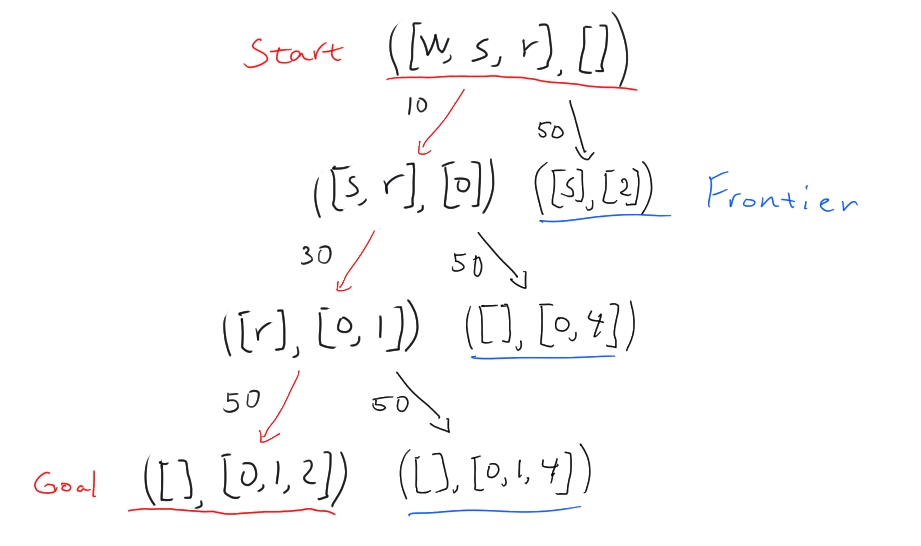 Start ([W, s, r], [])
10 50
([s, r], [0]) ([s], [2]) Frontier
30 50
([r], [0, 1]) ([], [0, 4])
50 50
Goal ([], [0, 1, 2]) ([], [0, 1, 4])